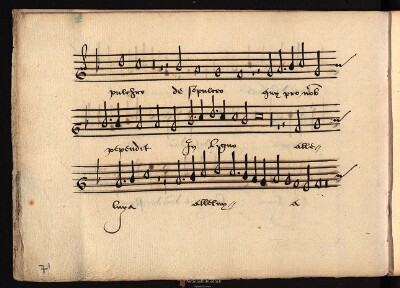 pulchro de sepulcro qui pro nob
pependit In Ligno alle-
luya alleluy- a